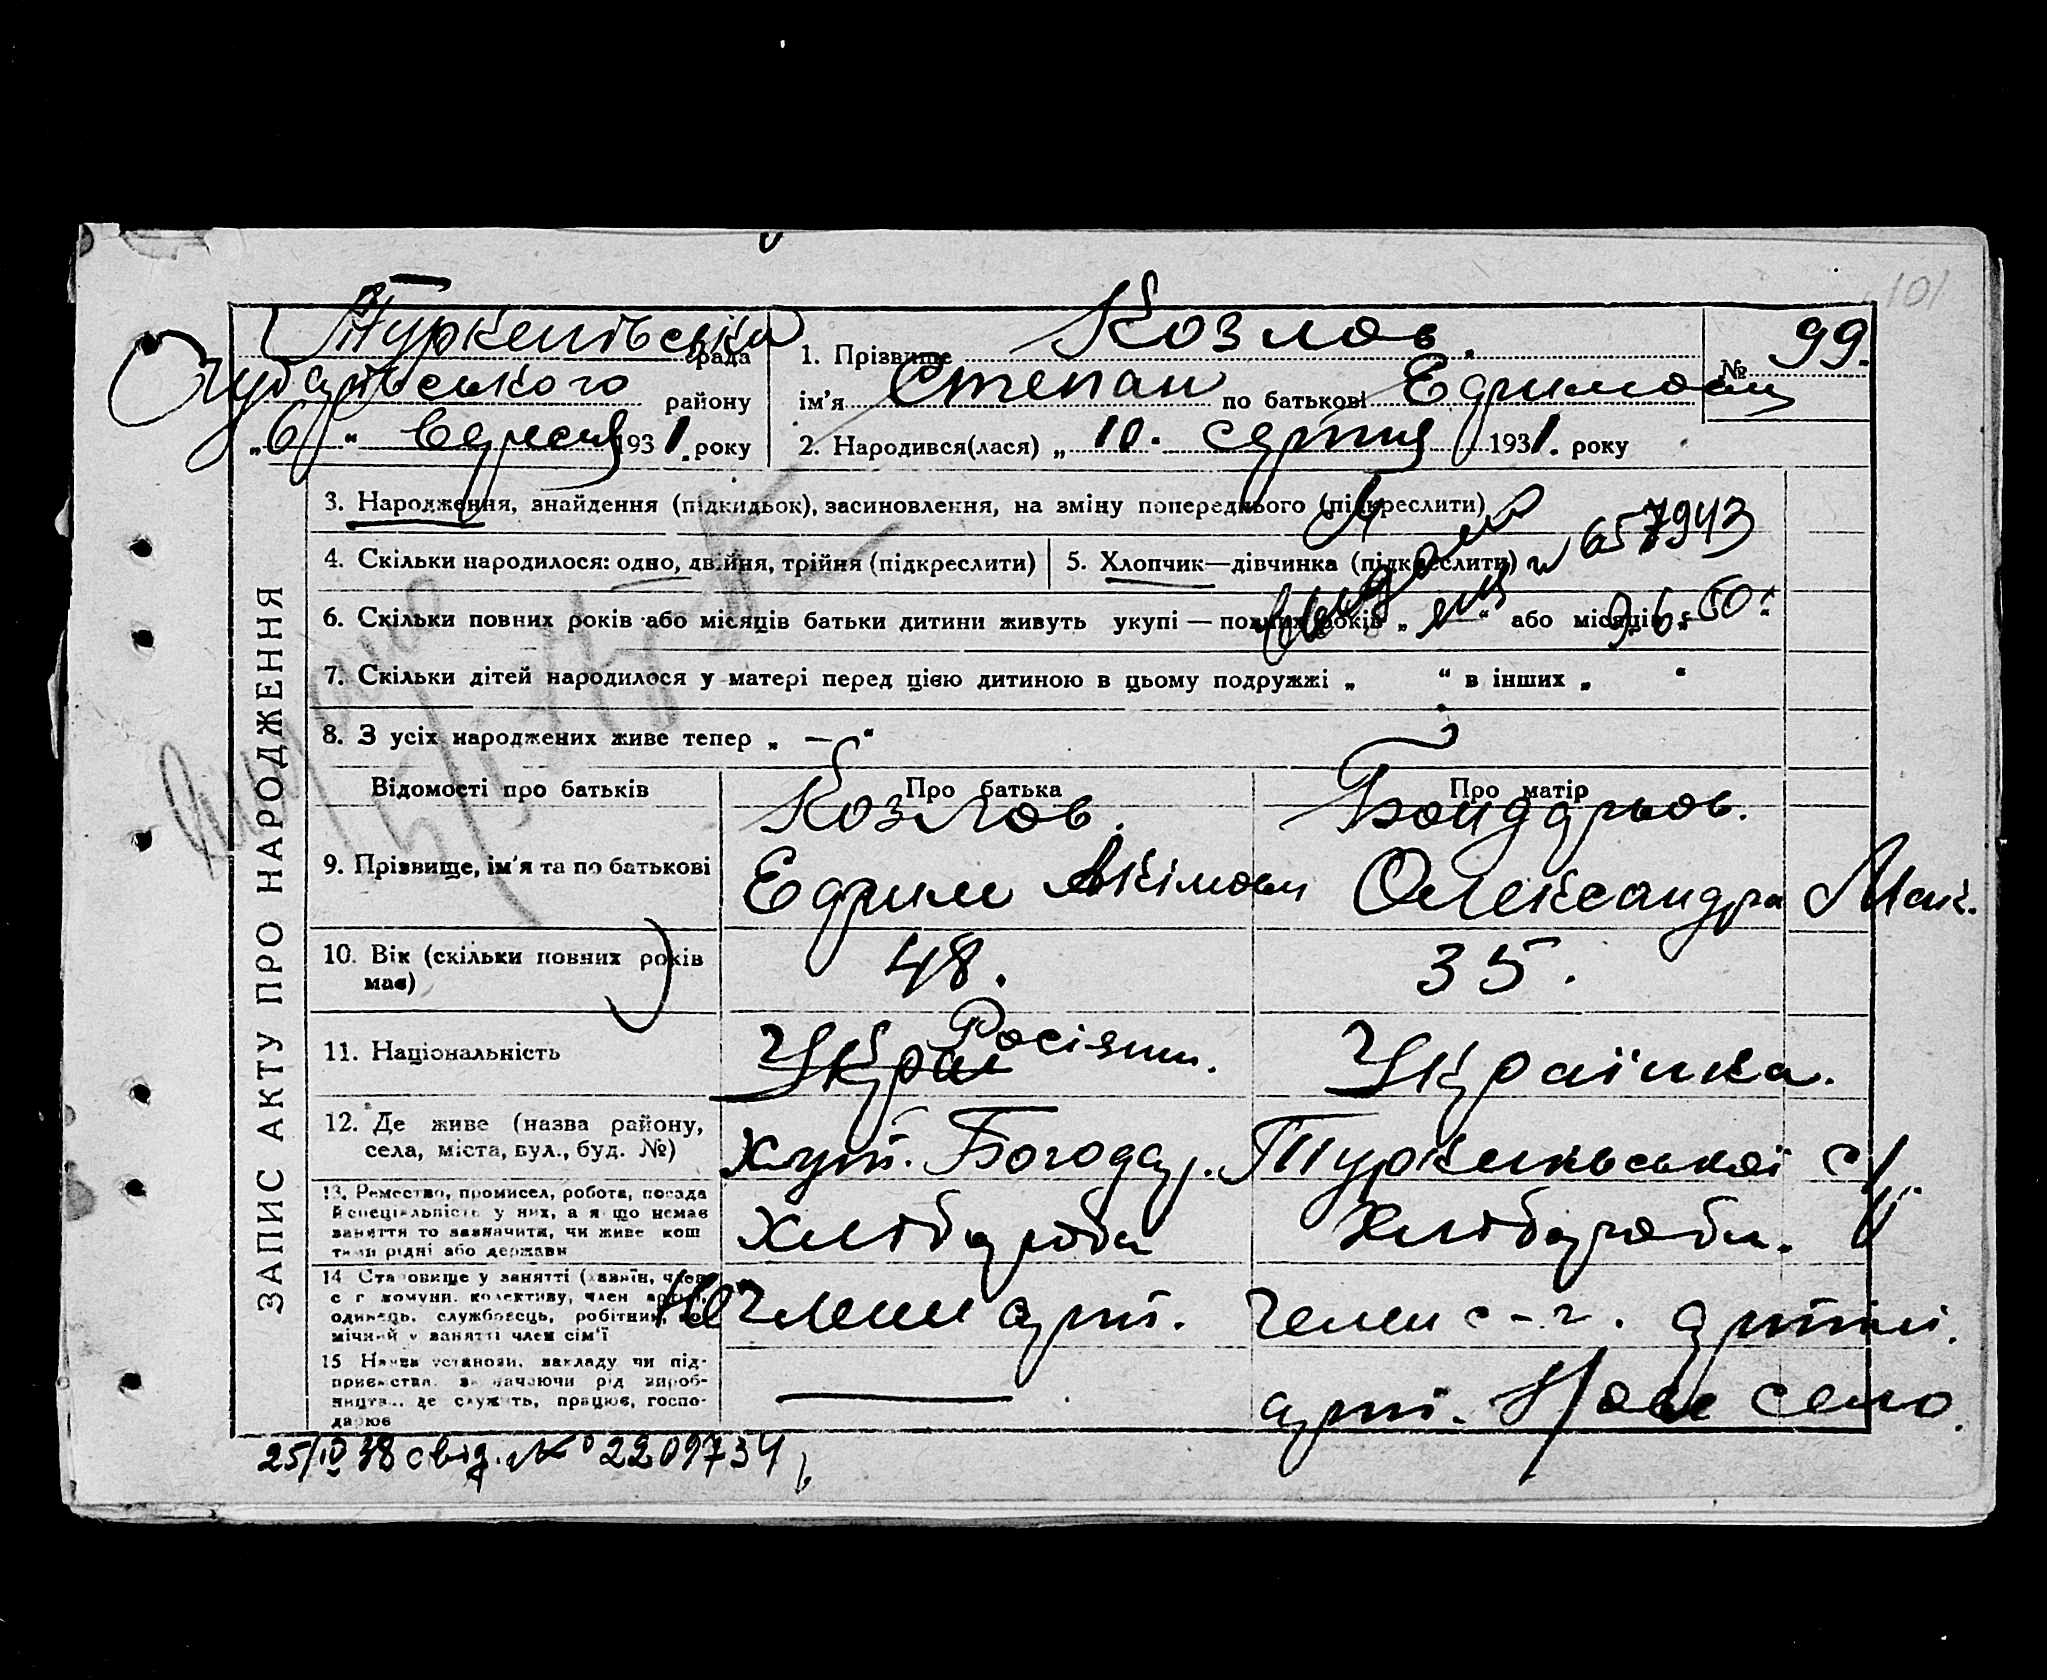 101
Туркенівська рада
Чубарівського району
„6“ вересня 1931. року
1. Прізвище Козлов.
№ 99.
ім'я Степан по батькові Ефимович
2. Народився(лася) „10. серпня 1931. року
ЗАПИС АКТУ ПРО НАРОДЖЕННЯ
3. Народження, знайдення (підкидьок), засиновлення, на зміну попереднього (підкреслити)
4. Скільки народилося: одно, двійня, трійня (підкреслити)
5. Хлопчик—дівчинка (підкреслити)
657943
6. Скільки повних років або місяців батьки дитини живуть укупі — повних років „ “ або місяців „
50
7. Скільки дітей народилося у матері перед цією дитиною в цьому подружжі „ “ в інших „ “
8. З усіх народжених живе тепер „ — “
Відомості про батьків
Про батька
Про матір
9. Прізвище, ім'я та по батькові
Козлов.
Ефим Акімович
Бондарьов.
Олександра Мак.
10. Вік (скільки повних років має)
48.
35.
11. Національність
Украї Росіянин.
Українка.
12. Де живе (назва району, села, міста, вул., буд. №)
Хут. Богодар. Туркеновської с/р
13. Ремество, промисел, робота, посада й спеціяльність у них, а якщо немає заняття то зазначити, чи живе коштами рідні або держави
Хлібороб
Хлібороб.
14 Становище у занятті (хазяїн, член с г комуни, колективу, член артілі, одинець, службовець, робітник, помічний у занятті член сім'ї
Не член арт.
Член с-г. артілі.
15 Назва установи, закладу чи підприємства, зазначаючи рід виробництва, де служить, працює, господарює
—
арт. Нове село.
25/IV 38 свід. № 2209734